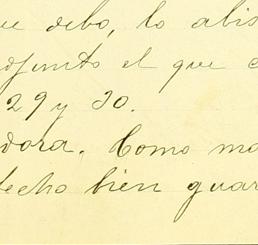 ue debo, lo abis
adjunto el que c
29 y 30.
dora. Como ma
techo bien guar